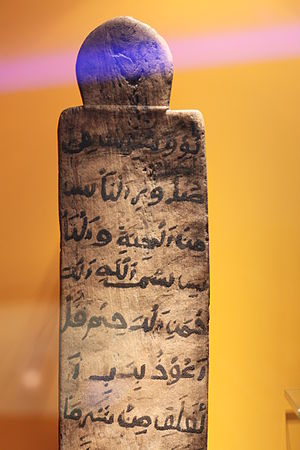 صدور الناس
من الجنة والنا
س بسم الله الر
حمن الرحيم قل
أعوذ برب ا
لفلق من شر ما